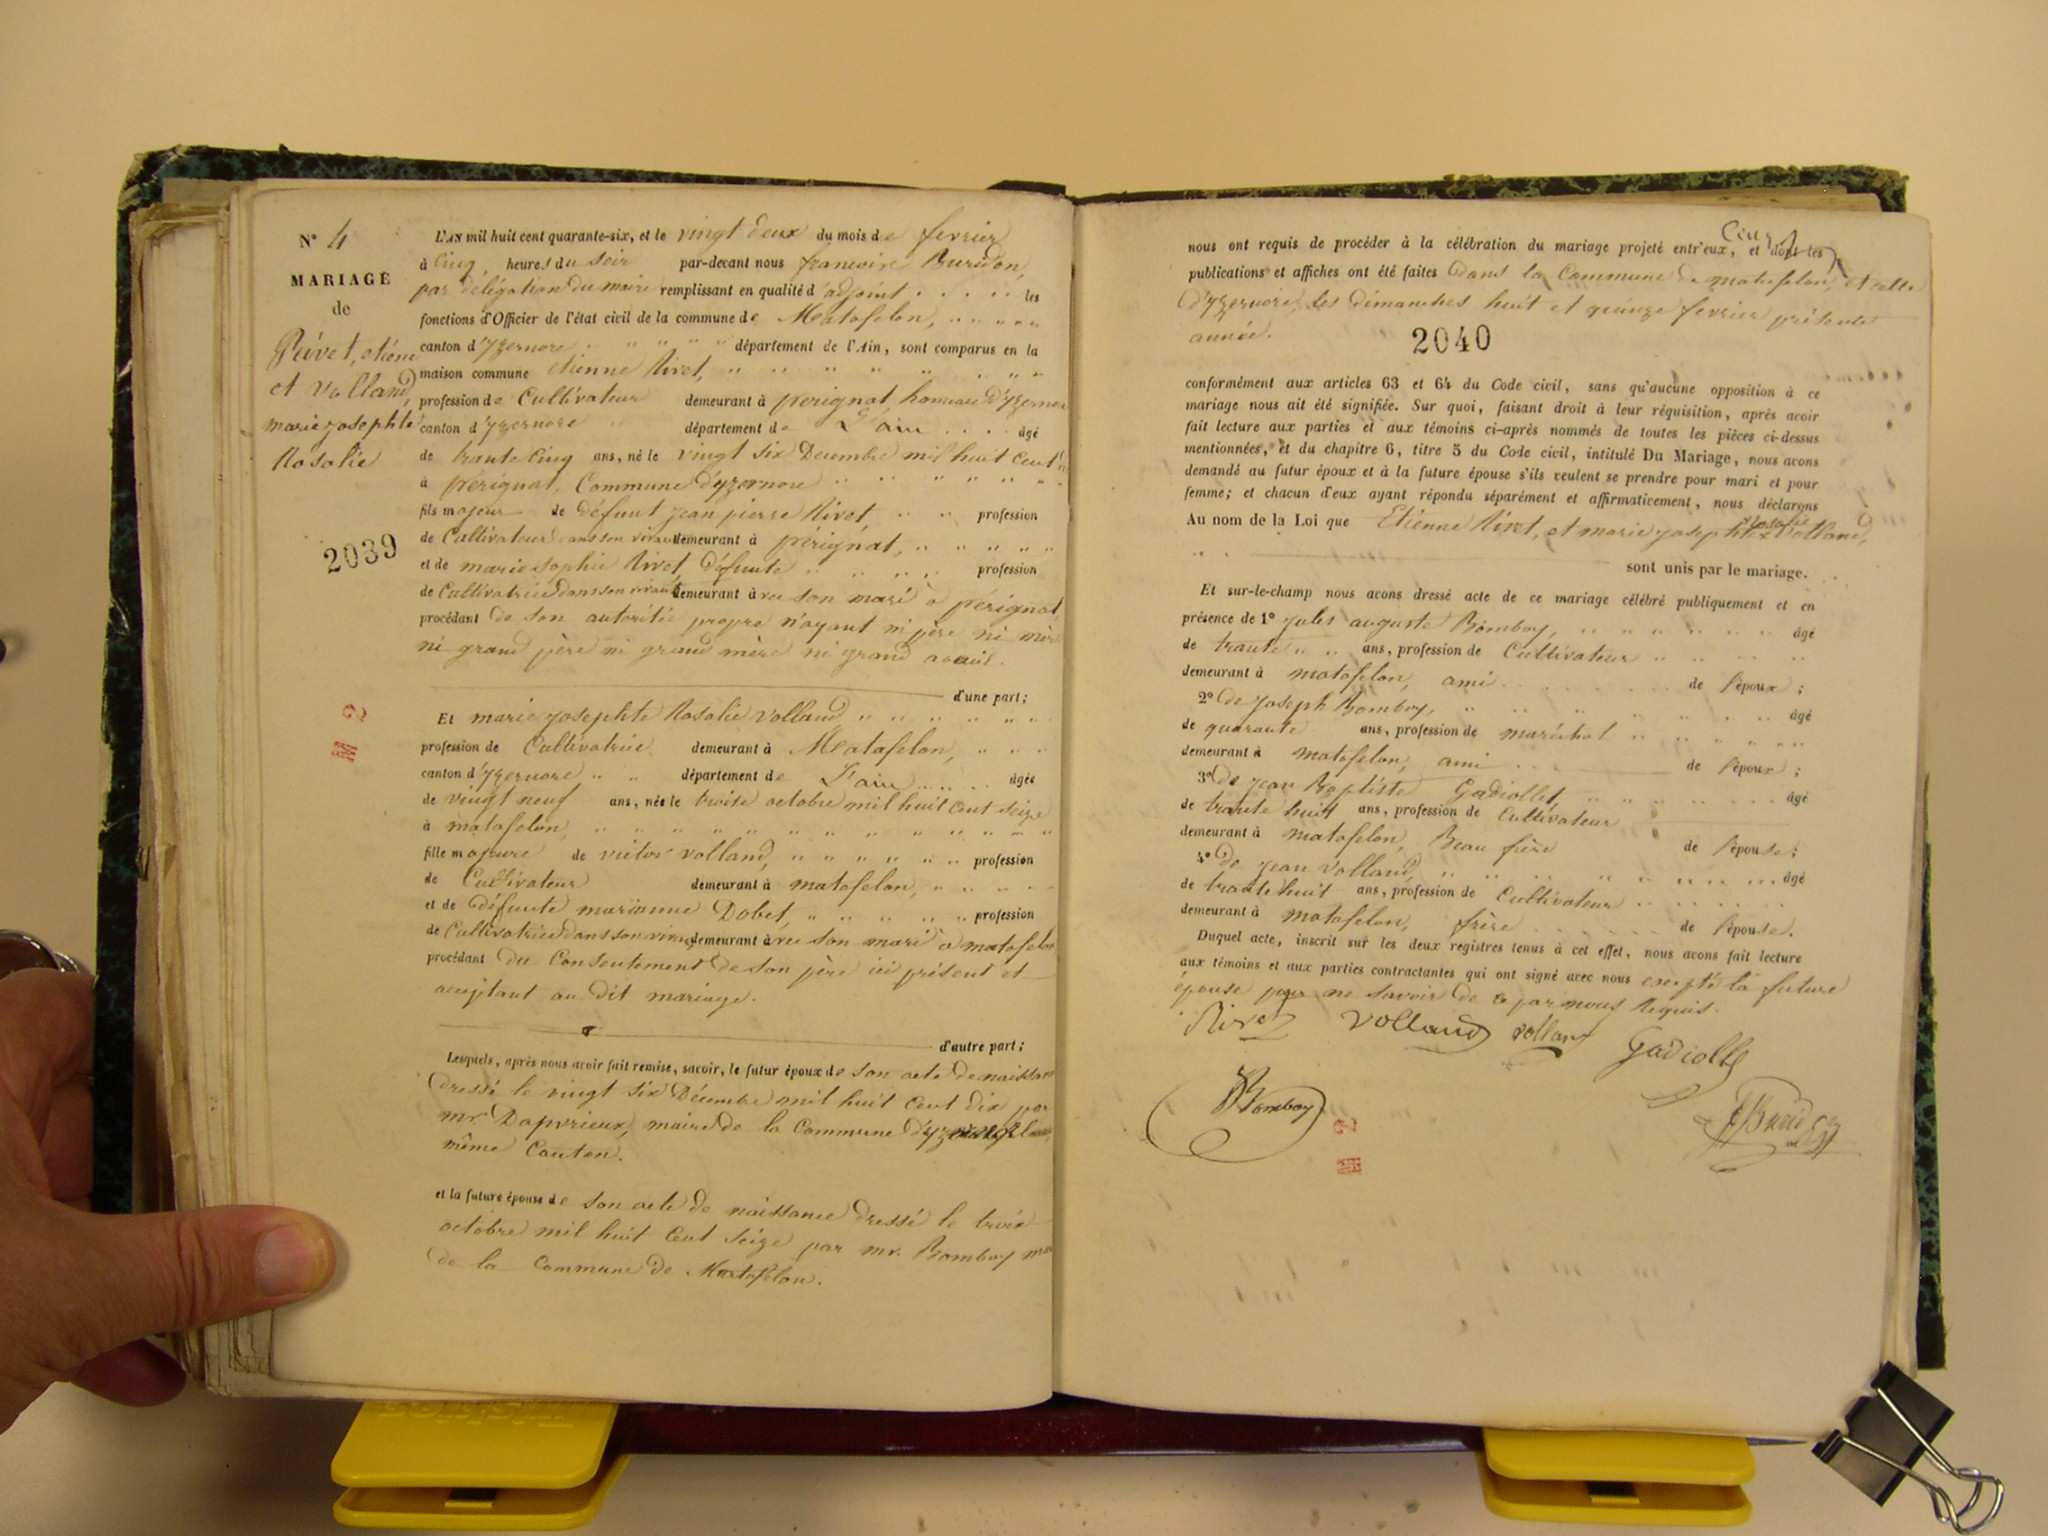 N° 4
MARIAGE
de
Rivet, etiene
et Volland,
marie josephte
Rosalie
2039
L'AN mil huit cent quarante-six, et le vingt deux du mois de fevrier
à cinq heures du soir par-devant nous francoise Buridon,
par délégation du maire remplissant en qualité d'adjoint les
fonctions d'Officier de l'état civil de la commune de Matafelon,
canton d'yzernore département de l'Ain, sont comparus en la
maison commune etienne Rivet,
profession de Cultivateur demeurant à perignat, hameau d'yzernore
canton d'yzernore département de L'ain âgé
de trante cinq ans, né le vingt six Decembre mil huit cent
à perignat, Commune d'yzernore
fils majeur de défunt jean pierre Rivet, profession
de Cultivateur dans son vivant demeurant à perignat,
et de marie sophie Rivet, défunte profession
de Cultivatrice dans son vivant demeurant avec son mari à perignat,
procédant de son autorité propre n'ayant ni père ni mère
ni grand père ni grand mère ni grand
d'une part;
Et marie josephte Rosalie Volland
profession de Cultivatrice demeurant à Matafelon,
canton d'yzernore département de L'ain âgée
de vingt neuf ans, née le troise octobre mil huit cent seize
à matafelon,
fille majeure de victor volland, profession
de Cultivateur demeurant à matafelon,
et de défunte marianne Dobet, profession
de Cultivatrice dans son vivant demeurant avec son mari à matafelon
procédant du Consentement de son père ici présent et
aceptant au dit mariage.
d'autre part;
Lesquels, après nous avoir fait remise, savoir, le futur époux de son acte de naissance
dressé le vingt six Décembre mil huit cent dix par
mr. maire de la Commune
même Canton.
et la future épouse de son acte de naissance dressé le trois
octobre mil huit Cent seize par mr. Bomboy
de la Commune de Matafelon.
nous ont requis de procéder à la célébration du mariage projeté entr'eux, et dont les
publications et affiches ont été faites dans la Commune de matafelon, et celle
d'yzernore, les dimanches huit et quinze fevrier présente
année.
2040
conformément aux articles 63 et 64 du Code civil, sans qu'aucune opposition à ce
mariage nous ait été signifiée. Sur quoi, faisant droit à leur réquisition, après avoir
fait lecture aux parties et aux témoins ci-après nommés de toutes les pièces ci-dessus
mentionnées, et du chapitre 6, titre 5 du Code civil, intitulé Du Mariage, nous avons
demandé au futur époux et à la future épouse s'ils veulent se prendre pour mari et pour
femme; et chacun d'eux ayant répondu séparément et affirmativement, nous déclarons
Au nom de la Loi que Etienne Rivet, et marie josephte Rosalie Volland,
sont unis par le mariage.
Et sur-le-champ nous avons dressé acte de ce mariage célébré publiquement et en
présence de 1° jules auguste Bomboy, âgé
de trante ans, profession de Cultivateur
demeurant à matafelon, ami de l'époux;
2° de joseph Bomboy, âgé
de quarante ans, profession de maréchal
demeurant à matafelon, ami de l'époux;
3° de jean Baptiste Gadiollet, âgé
de trante huit ans, profession de Cultivateur
demeurant à matafelon, Beau frère de l'épouse;
4° de jean Volland, âgé
de trante huit ans, profession de Cultivateur
demeurant à matafelon, frère de l'épouse.
Duquel acte, inscrit sur les deux registres tenus à cet effet, nous avons fait lecture
aux témoins et aux parties contractantes qui ont signé avec nous excepté la future
épouse pour ne savoir de ce par nous Requis.
Rivet Volland vollan Gadiolle
Bomboy